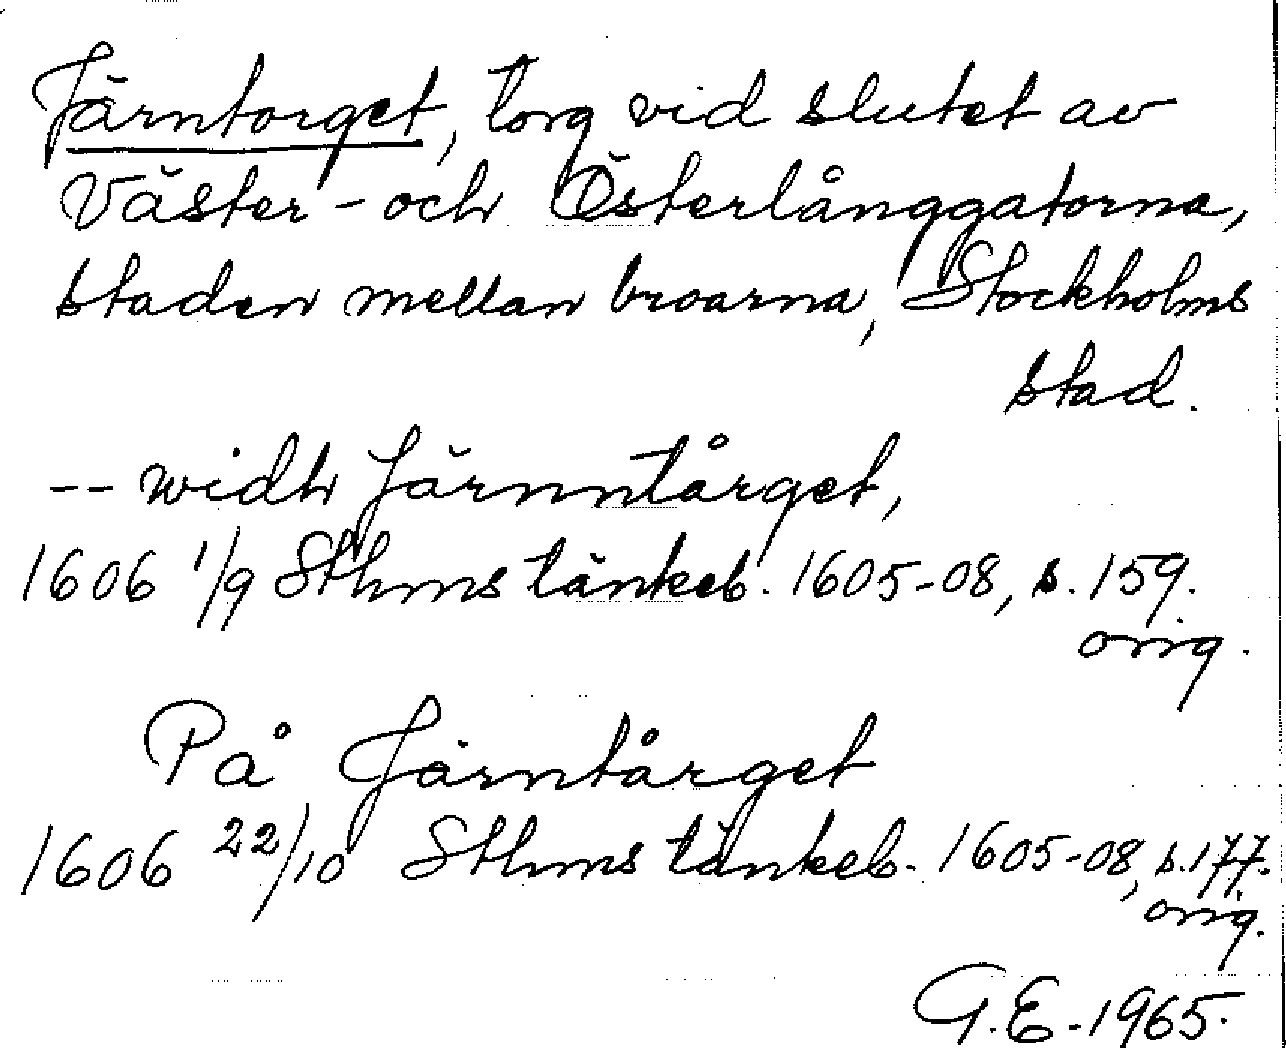 Järntorget, torg vid slutet av
Väster- och Österlånggatorna,
staden mellan broarna, Stockholms
stad.
-- widh Järnntårget,
1606 1/9 Sthms tänkeb. 1605-08, s. 159.
orig.
På Järntårget
1606 22/10 Sthms tänkeb. 1605-08, s. 177.
orig.
G.E. 1965.